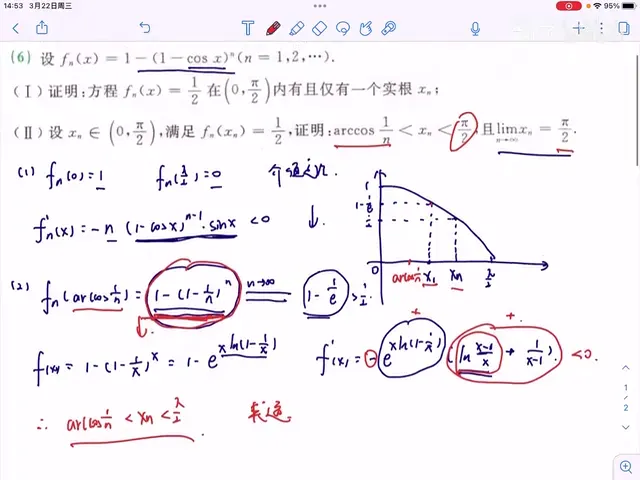 14:53 3月22日周三
95%
(6) 设 fₙ(x)=1-(1-cos x)ⁿ(n=1,2,…).
(Ⅰ)证明:方程 fₙ(x)=1/2 在(0,π/2)内有且仅有一个实根 xₙ;
(Ⅱ)设 xₙ∈(0,π/2),满足 fₙ(xₙ)=1/2,证明:arccos 1/n<xₙ<π/2,且lim n→∞ xₙ=π/2.
(1) fₙ(0)=1 fₙ(π/2)=0
f'ₙ(x)=-n(1-cosx)ⁿ⁻¹·sinx<0 ↓.
1
1-1/e
1/2
0 arccos1/n x₁ xₙ π/2
(2) fₙ(arccos 1/n)=1-(1-1/n)ⁿ n→∞ 1-1/e>1/2
f(x)=1-(1-1/x)ˣ=1-e^(xln(1-1/x)) f'(x)=-e^(xln(1-1/x))(ln (x-1)/x+1/(x-1))<0.
+ +
∴ arccos1/n<xₙ<π/2.
1
2
1/2